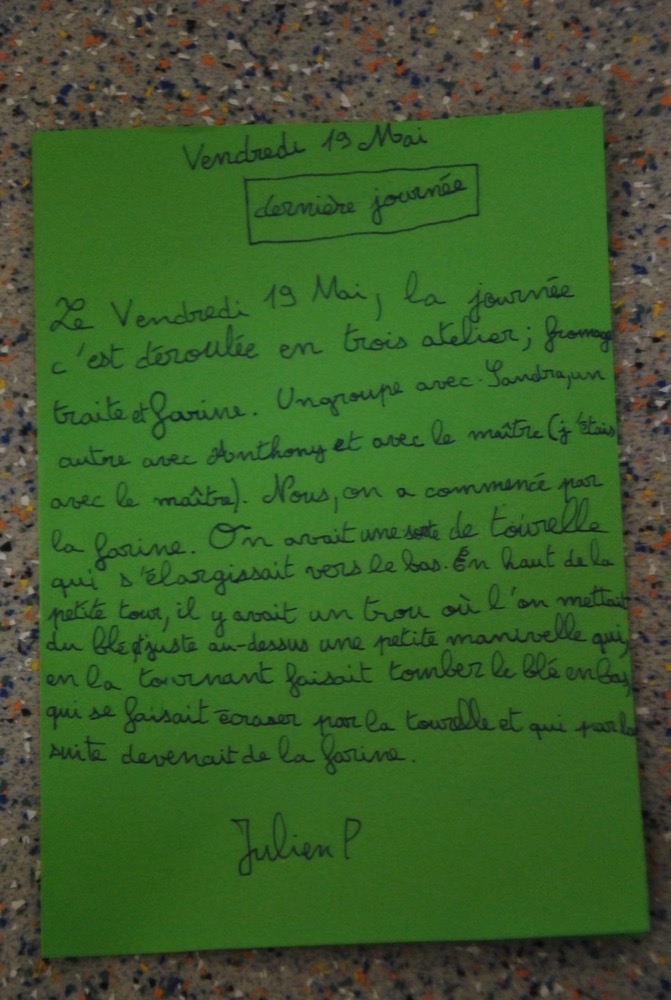 Vendredi 19 Mai
dernière journée
Le Vendredi 19 Mai, la journée
c'est déroulée en trois atelier; fromage
traite et farine. Un groupe avec Sandra, un
autre avec Anthony et avec le maître (j'étais
avec le maître). Nous, on a commencé par
la farine. On avait une sorte de tourelle
qui s'élargissait vers le bas. En haut de la
petite tour, il y avait un trou où l'on mettait
du blé juste au-dessus une petite manivelle qui,
en la tournant faisait tomber le blé en bas,
qui se faisait écraser par la tourelle et qui par la
suite devenait de la farine.
Julien P